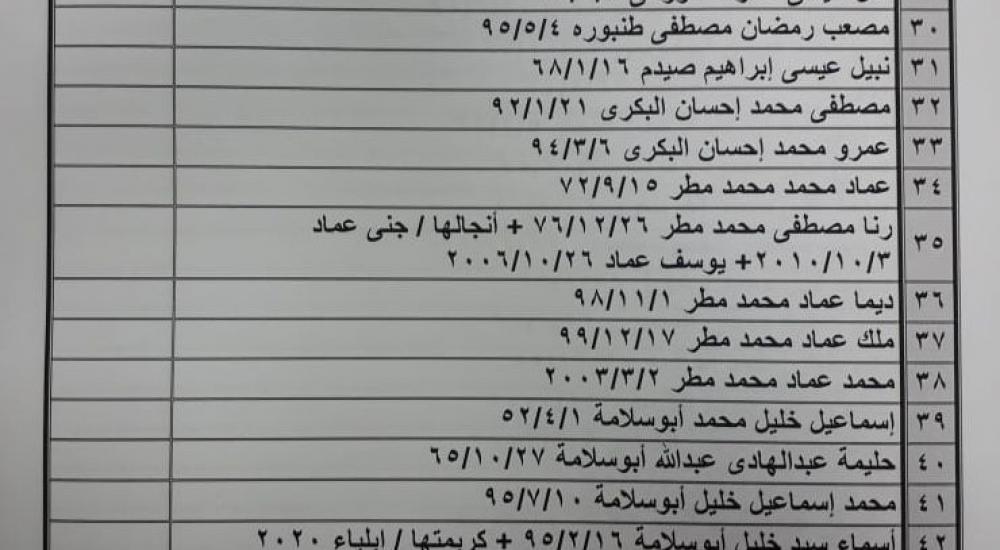 ٣٠ مصعب رمضان مصطفى طنبوره ٩٥/٥/٤
٣١ نبيل عيسى إبراهيم صيدم ٦٨/١/١٦
٣٢ مصطفى محمد إحسان البكرى ٩٢/١/٢١
٣٣ عمرو محمد إحسان البكرى ٩٤/٣/٦
٣٤ عماد محمد محمد مطر ٧٢/٩/١٥
٣٥ رنا مصطفى محمد مطر ٧٦/١٢/٢٦ + أنجالها / جنى عماد
٢٠١٠/١٠/٣+ يوسف عماد ٢٠٠٦/١٠/٢٦
٣٦ ديما عماد محمد مطر ٩٨/١١/١
٣٧ ملك عماد محمد مطر ٩٩/١٢/١٧
٣٨ محمد عماد محمد مطر ٢٠٠٣/٣/٢
٣٩ إسماعيل خليل محمد أبوسلامة ٥٢/٤/١
٤٠ حليمة عبدالهادى عبدالله أبوسلامة ٦٥/١٠/٢٧
٤١ محمد إسماعيل خليل أبوسلامة ٩٥/٧/١٠
٤٢ أسماء سيد خليل أبوسلامة ٩٥/٢/١٦ + كريمتها / إيلياء ٢٠٢٠